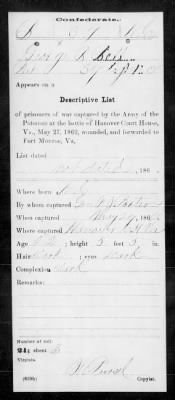 Confederate.
B 37 N.C.
George R Bell
Appears on a
Descriptive List
of prisoners of war captured by the Army of the
Potomac at the battle of Hanover Court House,
Va., May 27, 1862, wounded, and forwarded to
Fort Monroe, Va.
List dated
not dated, 186 .
Where born N.C.
By whom captured
When captured May 27, 186
Where captured Hanover C. House
Age ; height 5 feet in.
Hair Dark ; eyes Dark
Complexion Dark
Remarks:
Number of roll:
211; sheet 3
Virginia.
(639b) Copyist.